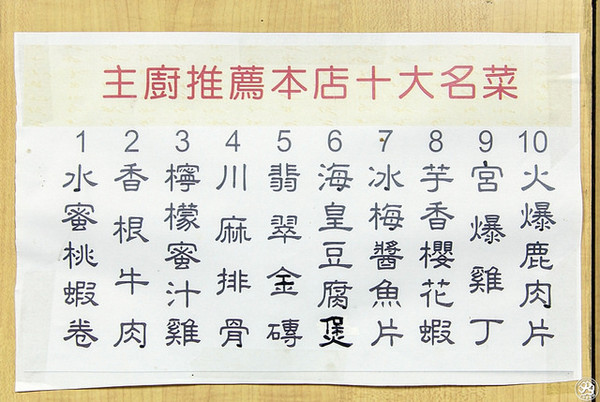 主廚推薦本店十大名菜
1 水蜜桃蝦卷
2 香根牛肉
3 檸檬蜜汁雞
4 川麻排骨
5 翡翠金磚
6 海皇豆腐煲
7 冰梅醬魚片
8 芋香櫻花蝦
9 宮爆雞丁
10 火爆鹿肉片